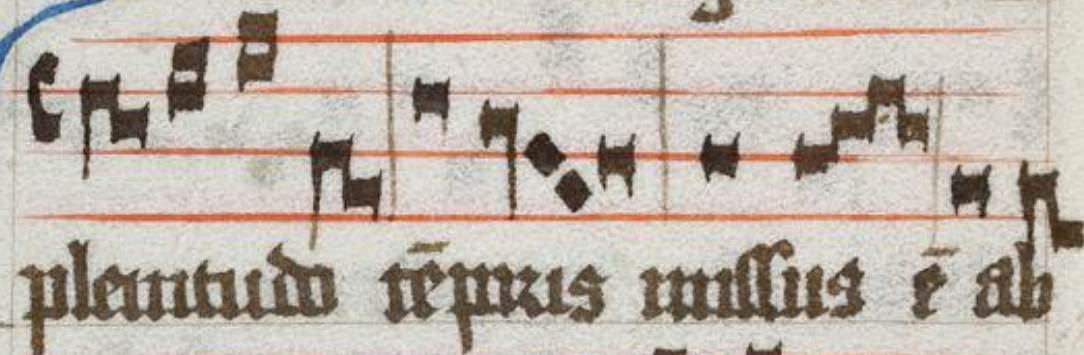 plenitudo tēpris missus ē ab